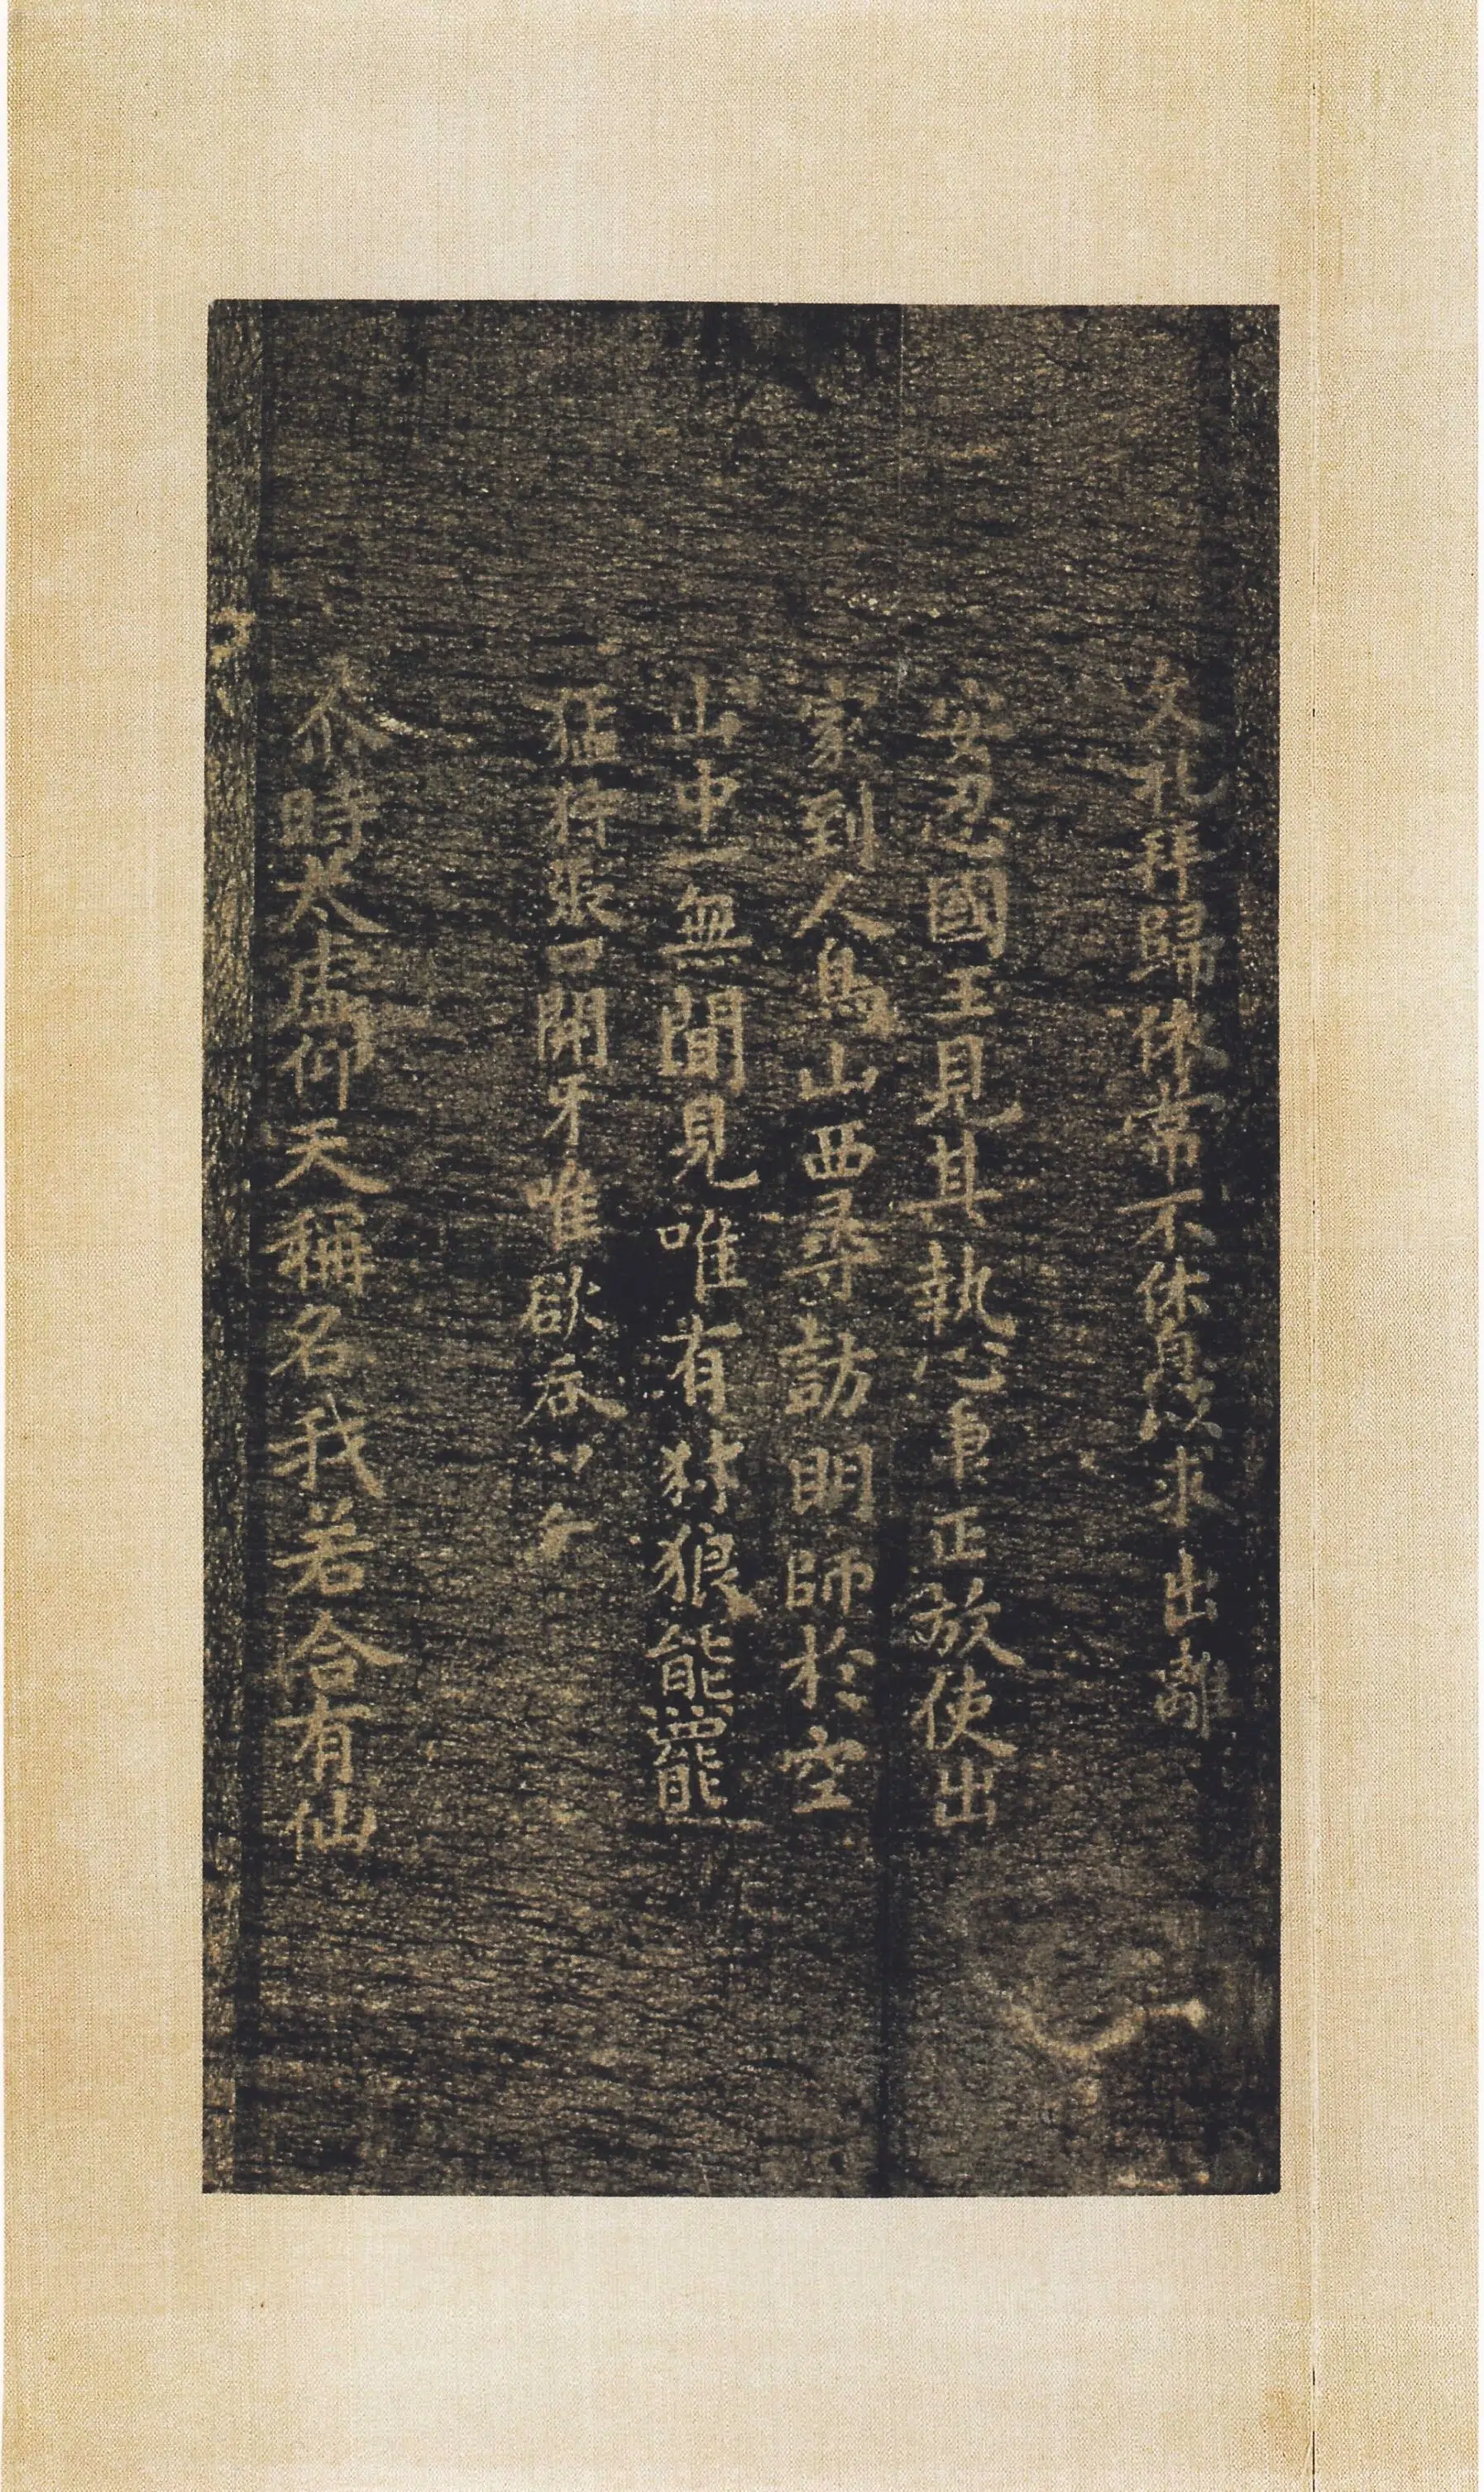 久礼拜歸依常不休息以求出離
安忍國王見其執心車正放使出
家到人鳥山西尋訪明師於空
山中一無聞見唯有犲狼能羆
猛狩張口開牙唯欲吞
尒時太虛仰天稱名我若合有仙